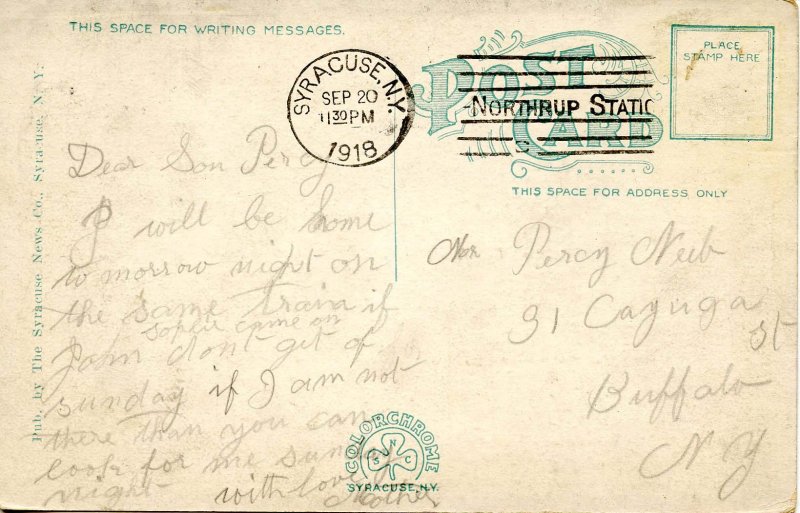 THIS SPACE FOR WRITING MESSAGES.
SYRACUSE, N.Y.
SEP 20
11 30 PM
1918
POST CARD
NORTHRUP STATIO
PLACE
STAMP HERE
THIS SPACE FOR ADDRESS ONLY
Pub. by The Syracuse News Co., Syracuse, N. Y.
Dear Son Percy
I will be home
to morrow night on
the same train if
sophie came on
John dont get of
sunday if I am not
there than you can
look for me sunday
night with love
Mother
Percy Neeb
91 Cayuga
St
Buffalo
N Y
COLORCHROME
S N C
SYRACUSE, N.Y.